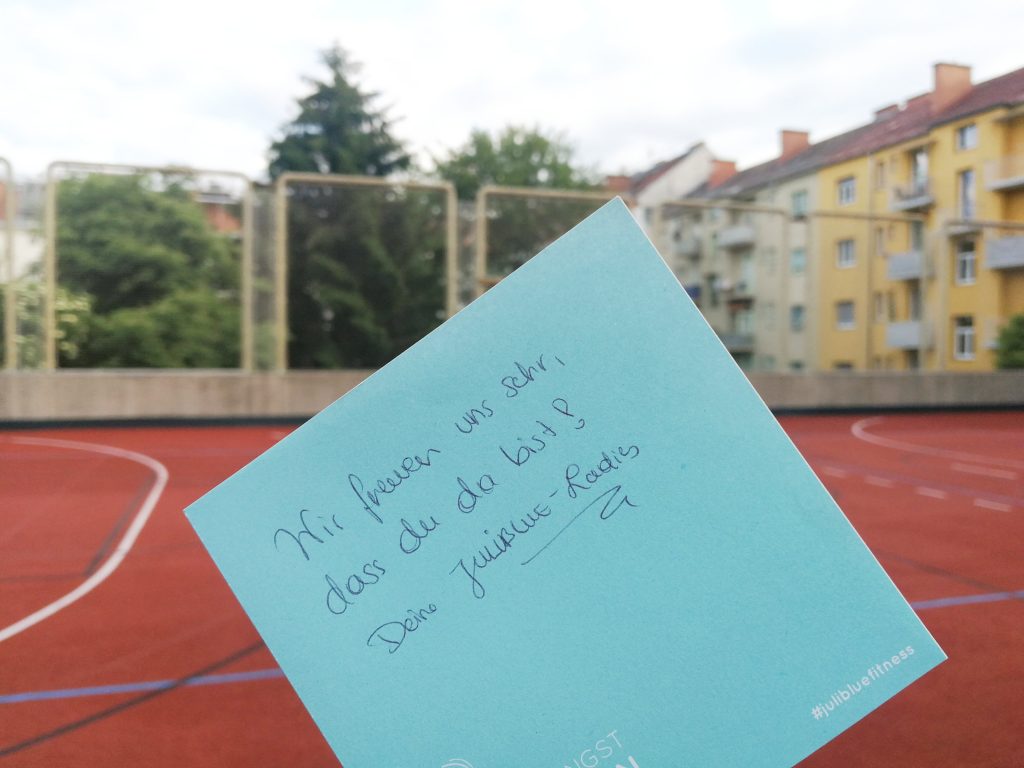 Wir freuen uns sehr,
dass du da bist!
Deine JULIBLUE-Ladies
#julibluefitness
NGST